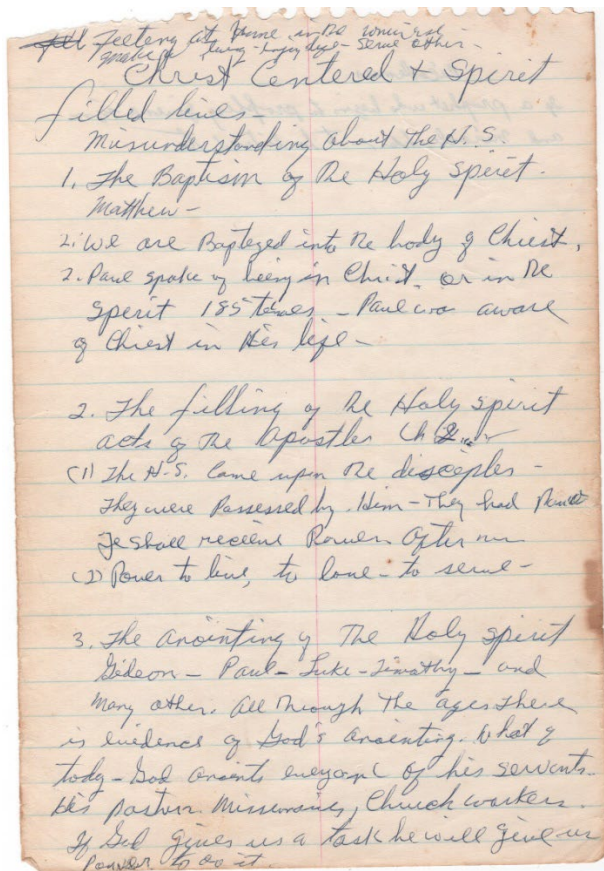 feeling at home in the universe
making living - enjoy life - serve other -
Christ Centered + Spirit
filled lives
Misunderstanding about the H.S.
1. The Baptism of the Holy Spirit.
Matthew -
1. We are Baptized into the body of Christ.
2. Paul spoke of being in Christ, or in the
Spirit 185 times - Paul was aware
of Christ in His life -
2. The filling of the Holy Spirit
acts of the Apostles Ch 2
(1) The H.S. Came upon the disciples -
They were Possessed by Him - They had Power
Ye shall receive Power after
(2) Power to live, to love - to serve -
3. The anointing of The Holy Spirit
Gideon - Paul - Luke - Timothy - and
Many other. All through the ages there
is evidence of God's anointing. What of
tody - God anoints everyone of his servants.
His pastors Missionaries, Church workers.
If God gives us a task he will give us
power to do it.